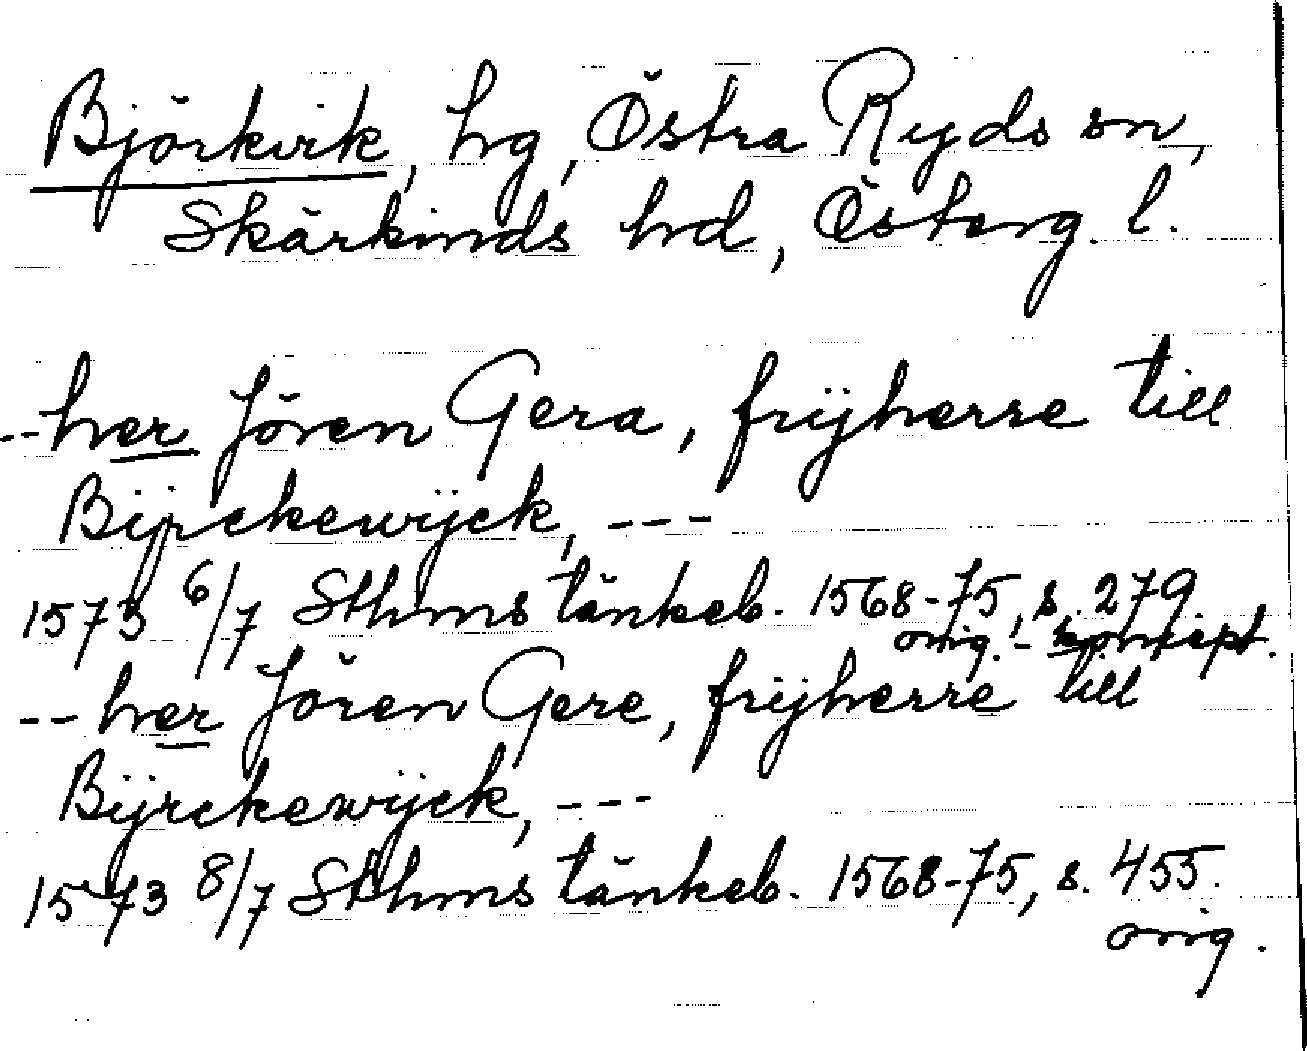 Björkvik, hg, Östra Ryds sn,
Skärkinds hd, Österg. l.
--her Jören Gera, frijherre till
Bijrckewijck, ---
1573 6/7 Sthms tänkeb. 1568-75, s. 279.
orig. - koncept.
--her Jören Gere, frijherre till
Bijrckewijck, ---
1573 8/7 Sthms tänkeb. 1568-75, s. 455.
orig.